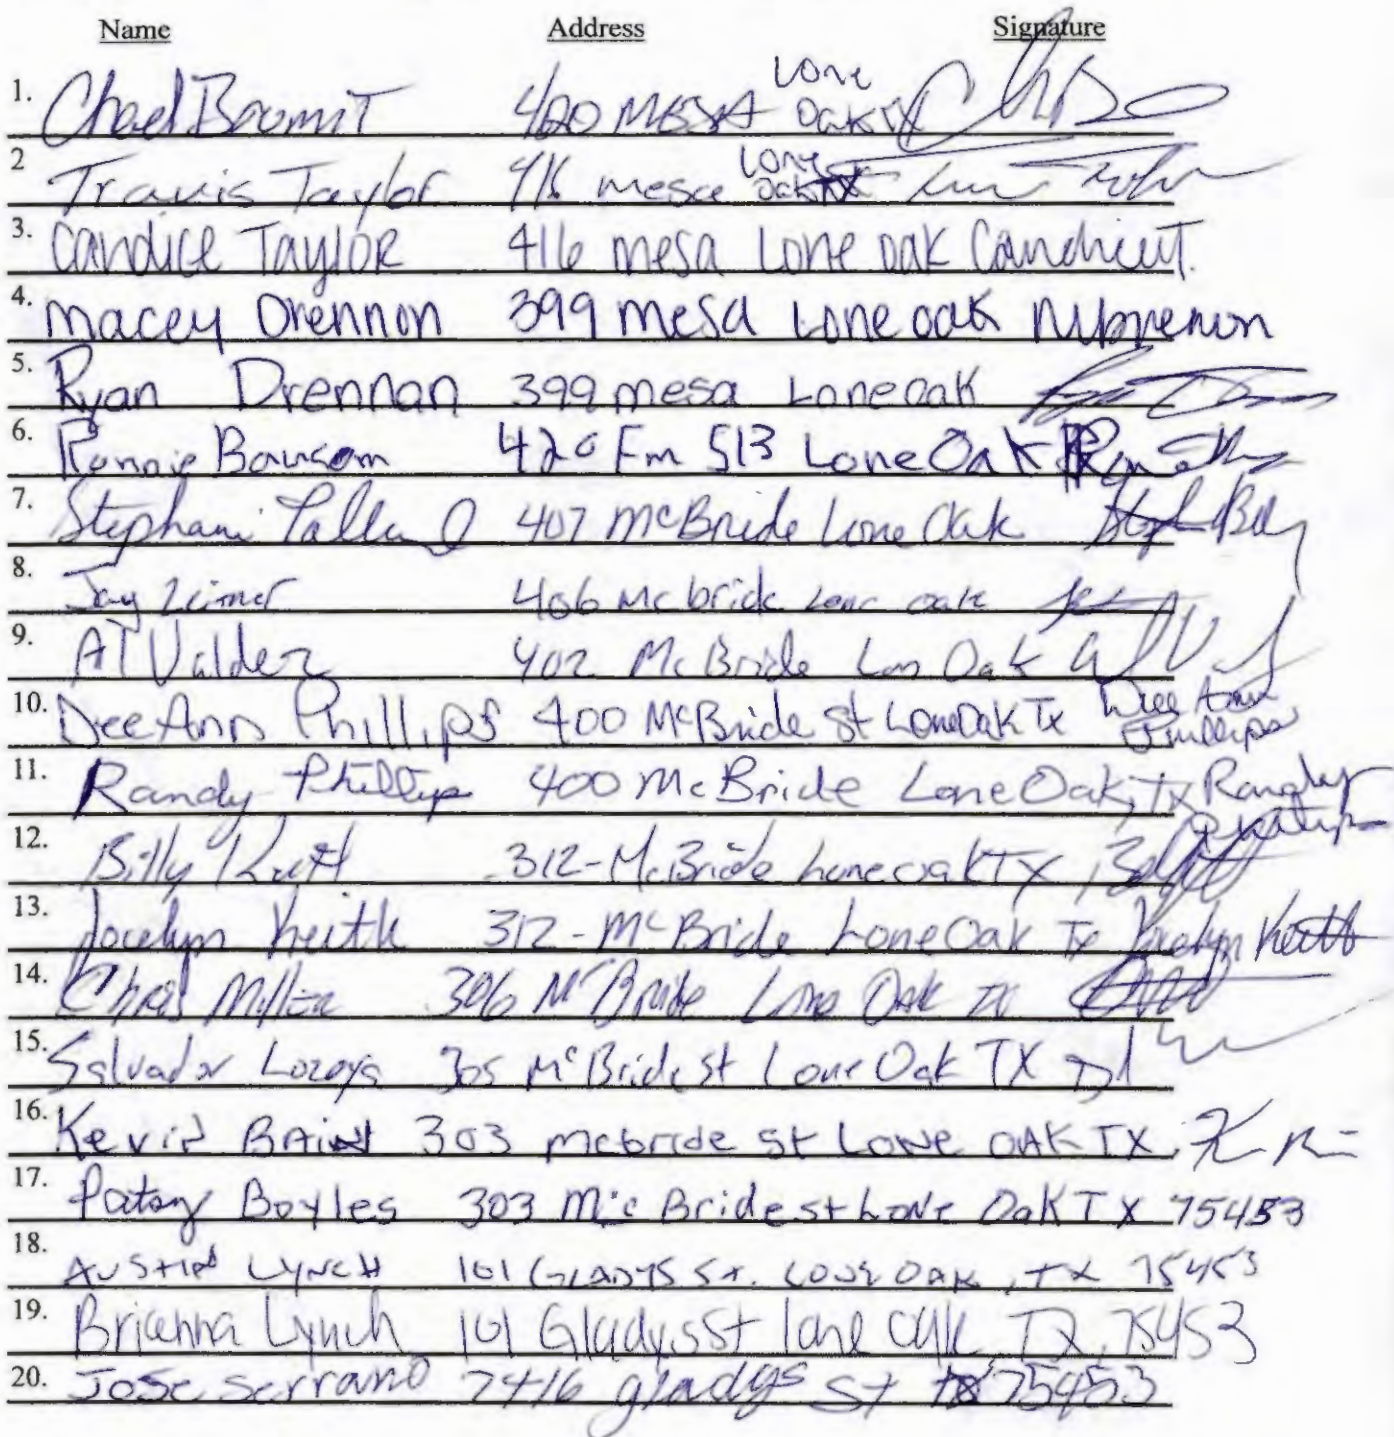 Name Address Signature
1. Chad 420 MESA Lone Oak TX
2 Travis Taylor 416 mesa Lone Oak TX
3. Candice Taylor 416 mesa Lone oak Candice T.
4. Macey Drennon 399 mesa Lone oak
5. Ryan Drennan 399 mesa Lone oak
6. Ronnie 420 Fm 513 Lone Oak
7. Stephani 407 McBride Lone Oak
8. Jay 406 Mcbride Lone oak
9. Al Valdez 402 McBride Lon Oak
10. DeeAnn Phillips 400 McBride St Lone Oak Tx Dee Ann Phillips
11. Randy Phillips 400 McBride Lone Oak, Tx Randy Phillips
12. Billy 312-McBride Lone oak TX
13. Jocelyn Keith 312-McBride Lone Oak Tx Jocelyn Keith
14. Chris Miller 306 McBride Lone Oak TX
15. Salvador Lozoya 305 McBride St Lone Oak TX
16. Kevin 303 mcbride st Lone OAK TX
17. Patsy Boyles 303 McBride st Lone Oak TX 75453
18. Austin Lynch 101 GLADYS St. Lone Oak, TX 75453
19. Brianna Lynch 101 Gladys St lone oak TX, 75453
20. Jose Serrano 7416 gladys St tx 75453